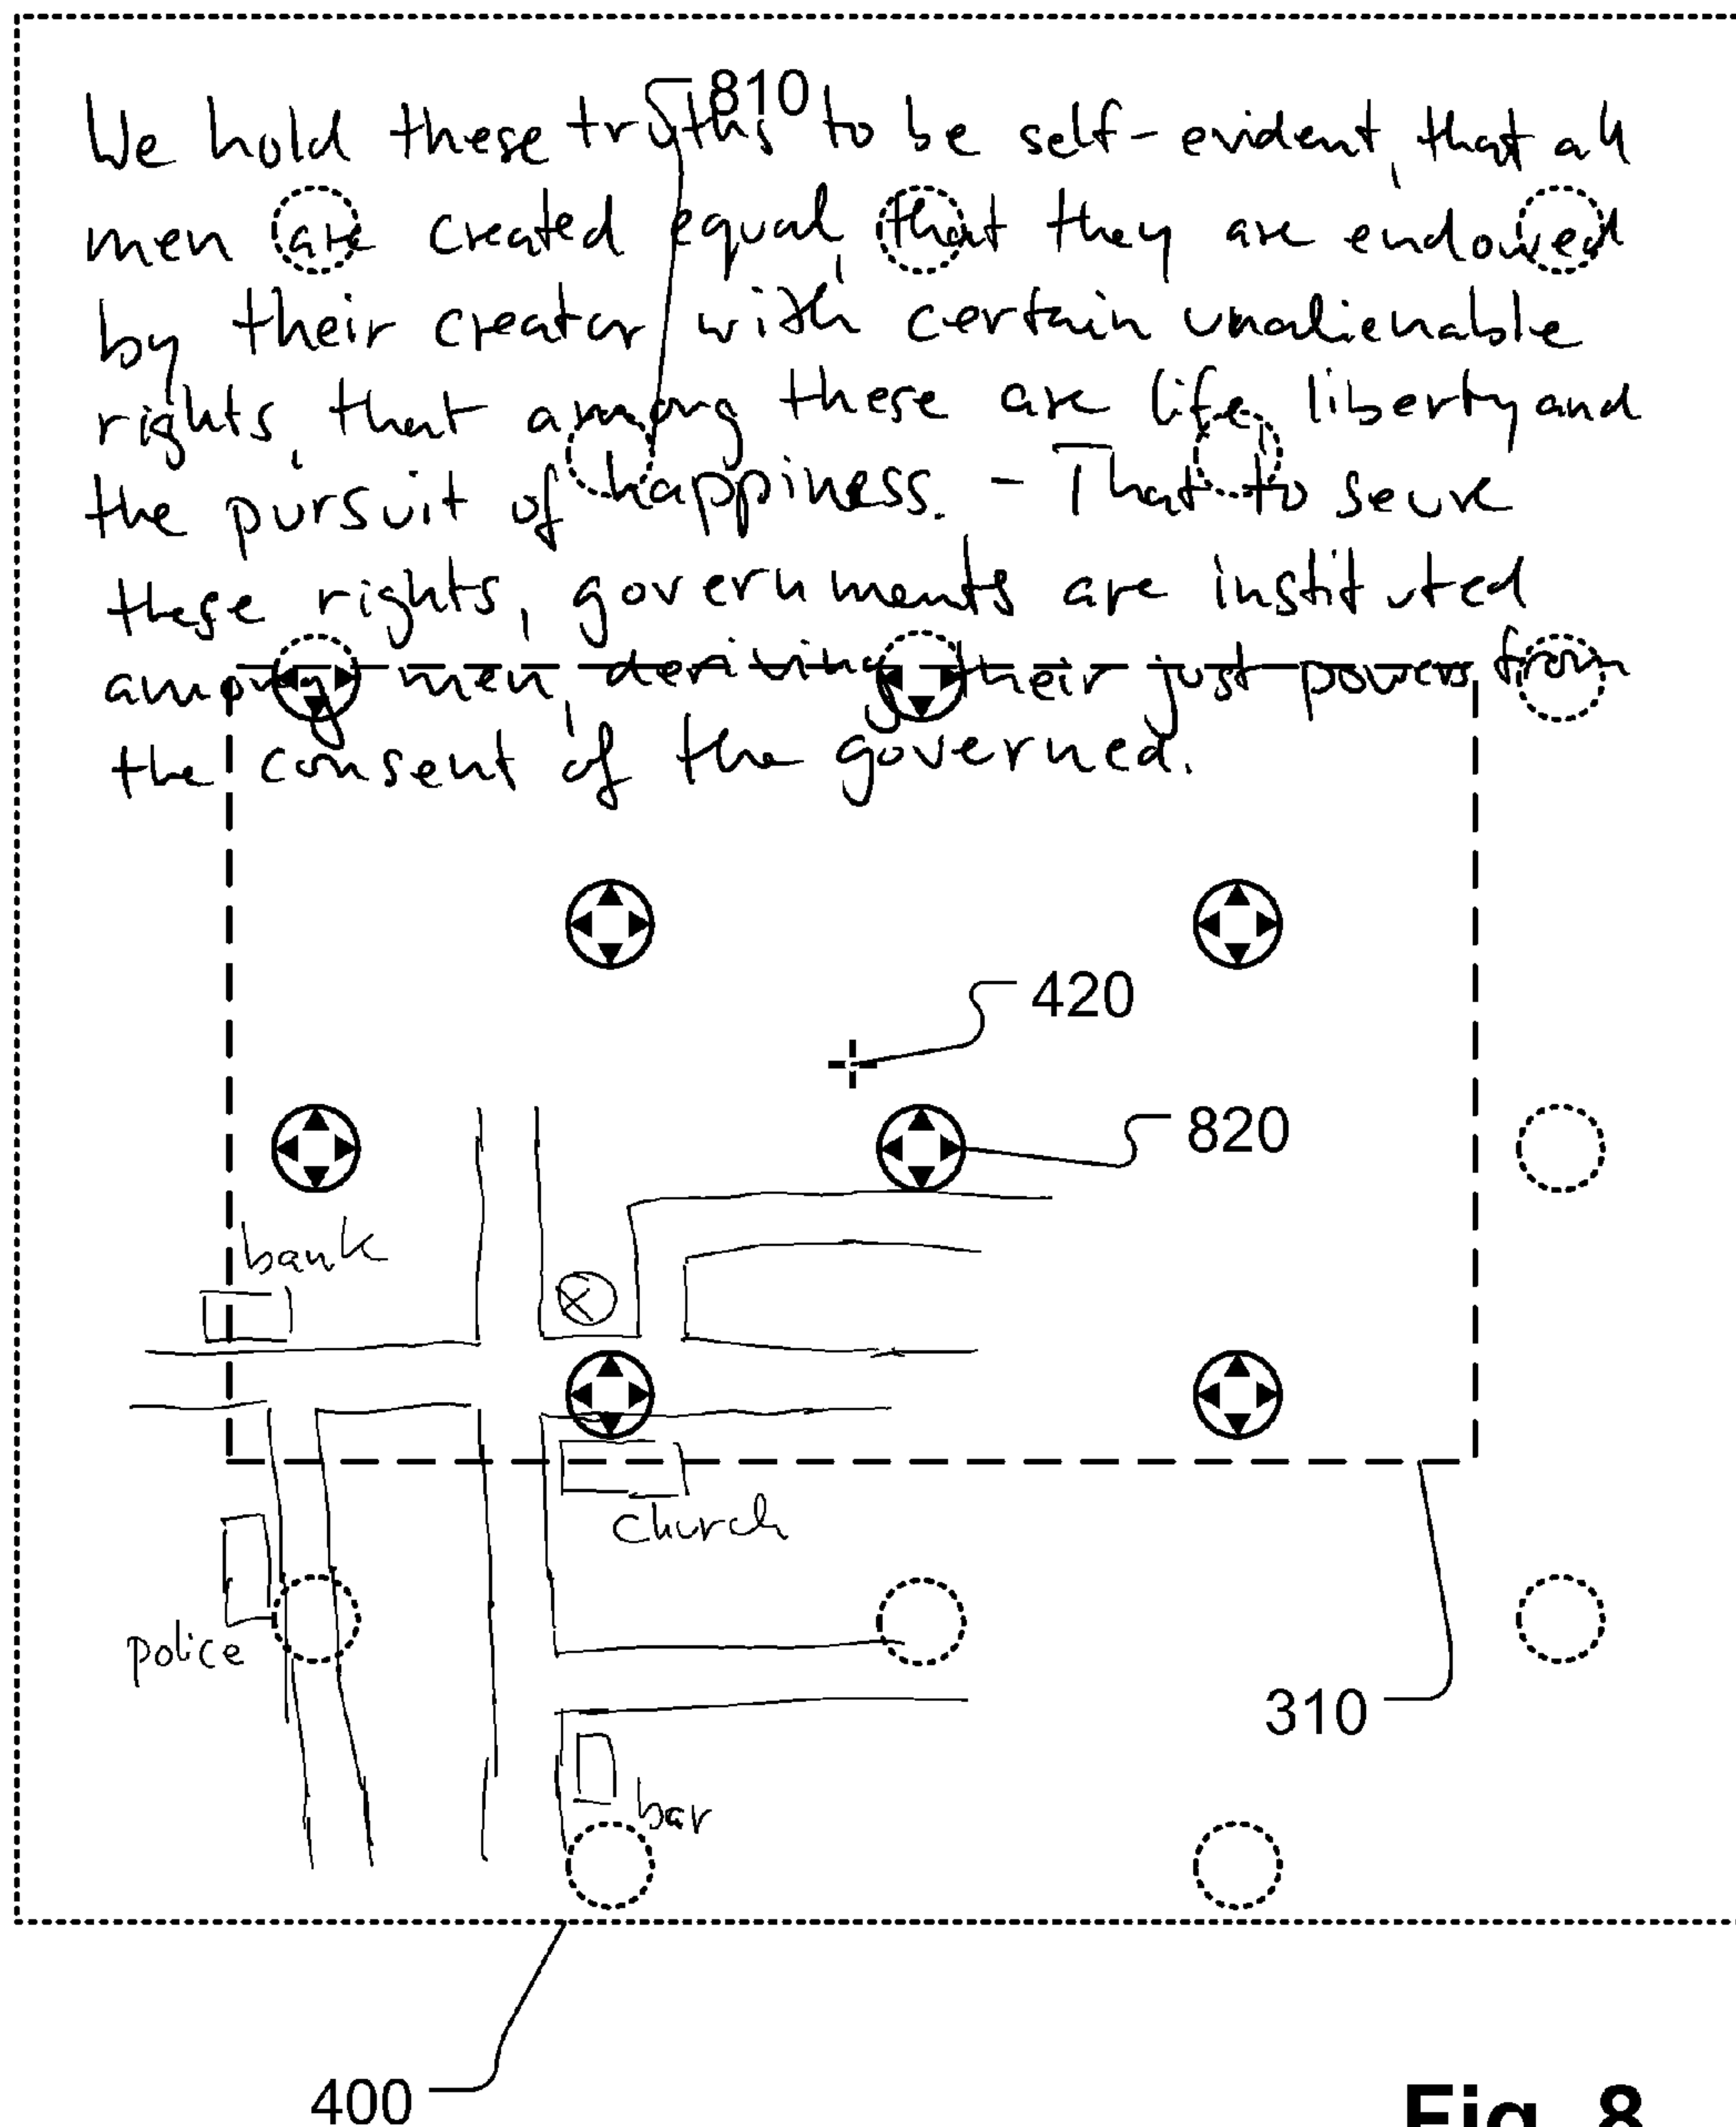 810
We hold these truths to be self-evident, that all
men are created equal, that they are endowed
by their creator with certain unalienable
rights, that among these are life, liberty and
the pursuit of happiness. - That to secure
these rights, governments are instituted
among men, deriving their just powers from
the consent of the governed.
420
820
bank
church
police
310
bar
400
Fig. 8